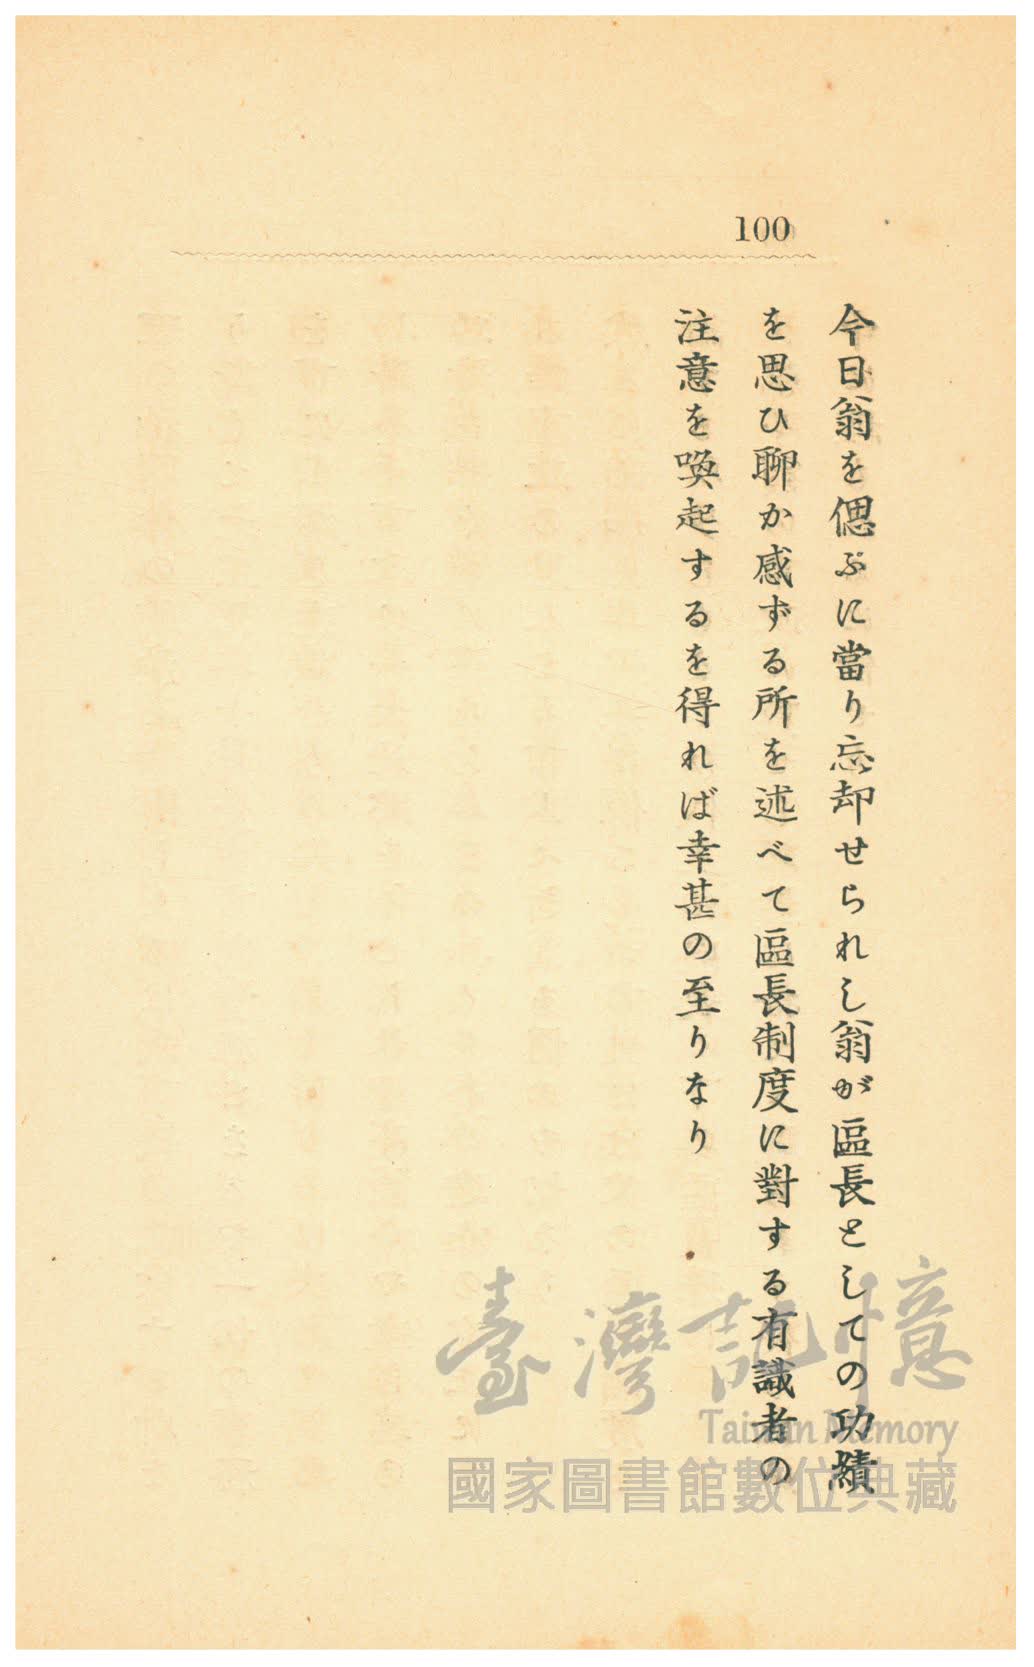 100
今日翁を偲ぶに當り忘却せられし翁が區長としての功績
を思ひ聊か感ずる所を述べて區長制度に對する有識者の
注意を喚起するを得れば幸甚の至りなり
臺灣記憶
Taiwan Memory
國家圖書館數位典藏